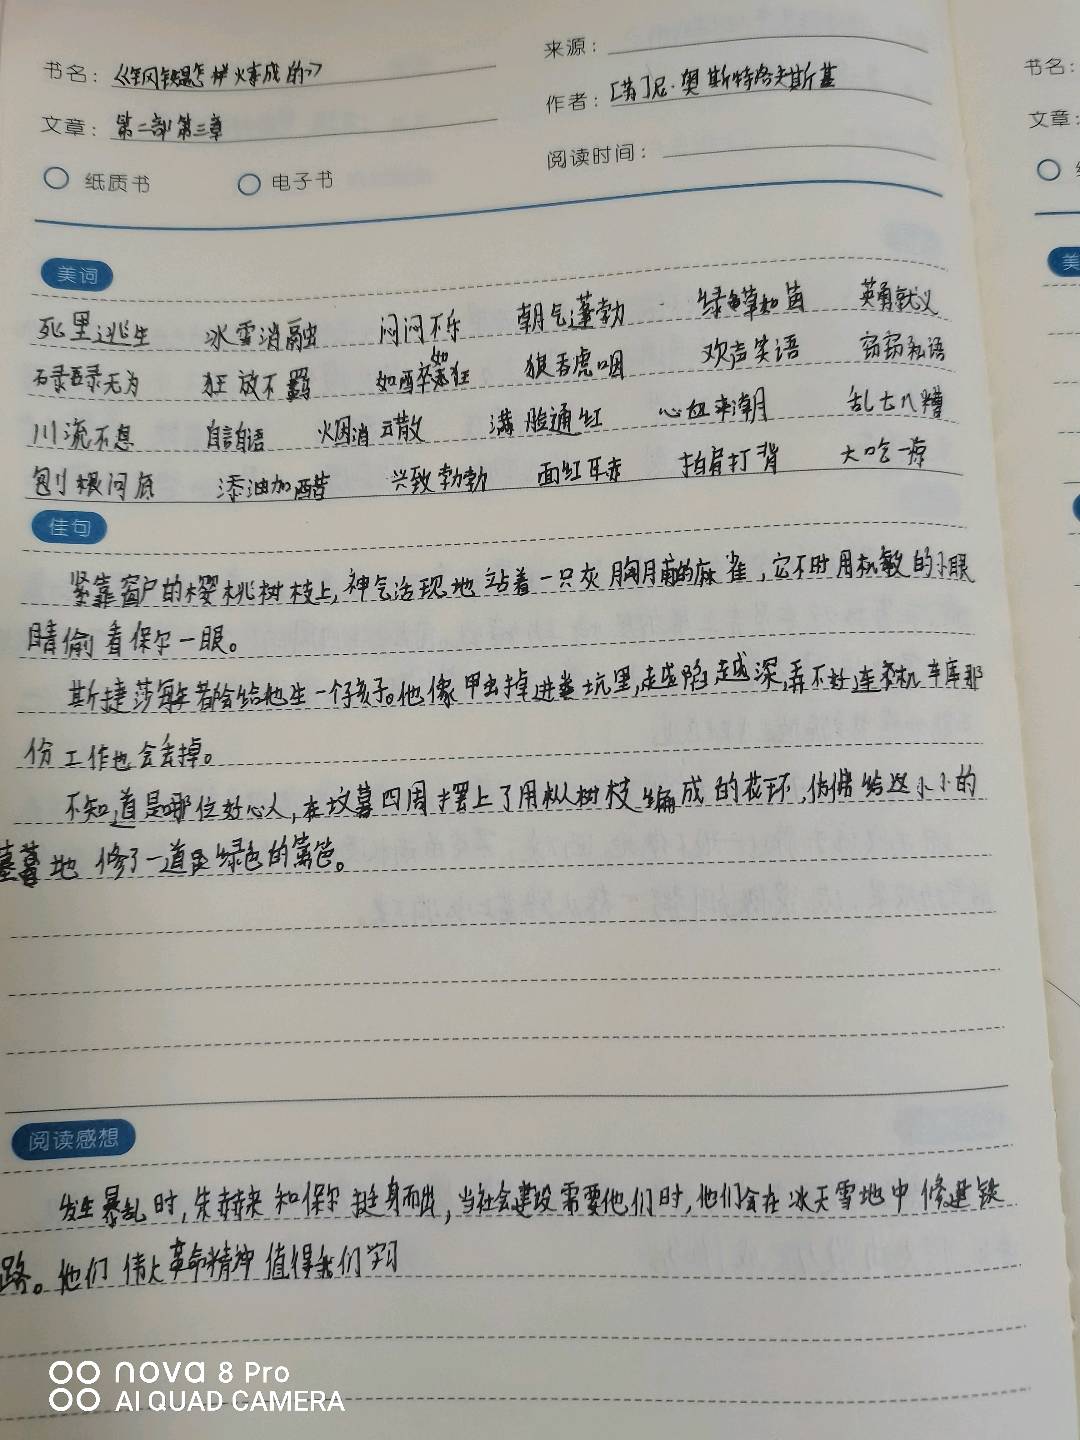 来源：
书名：《钢铁是怎样炼成的》
作者：[苏]尼·奥斯特洛夫斯基
文章：第二部第三章
阅读时间：
纸质书 电子书
美词
死里逃生 冰雪消融 闷闷不乐 朝气蓬勃 绿草如茵 英勇就义
碌碌无为 狂放不羁 如醉如狂 狼吞虎咽 欢声笑语 窃窃私语
川流不息 自言自语 烟消云散 满脸通红 心血来潮 乱七八糟
刨根问底 添油加醋 兴致勃勃 面红耳赤 拍肩打背 大吃一惊
佳句
紧靠窗户的樱桃树枝上,神气活现地站着一只灰胸脯的麻雀,它不时用机敏的小眼
睛偷看保尔一眼。
斯捷莎每年都会给他生一个孩子。他像甲虫掉进粪坑里,越陷越深,弄不好,连在机车库那
份工作也会丢掉。
不知道是哪位好心人,在坟墓四周摆上了用枞树枝编成的花环,仿佛给这小小的
墓地修了一道绿色的篱笆。
阅读感想
发生暴乱时,朱赫来和保尔挺身而出,当社会建设需要他们时,他们会在冰天雪地中修建铁
路。他们伟大革命精神值得我们学习
书名：
文章：
美
nova 8 Pro
AI QUAD CAMERA